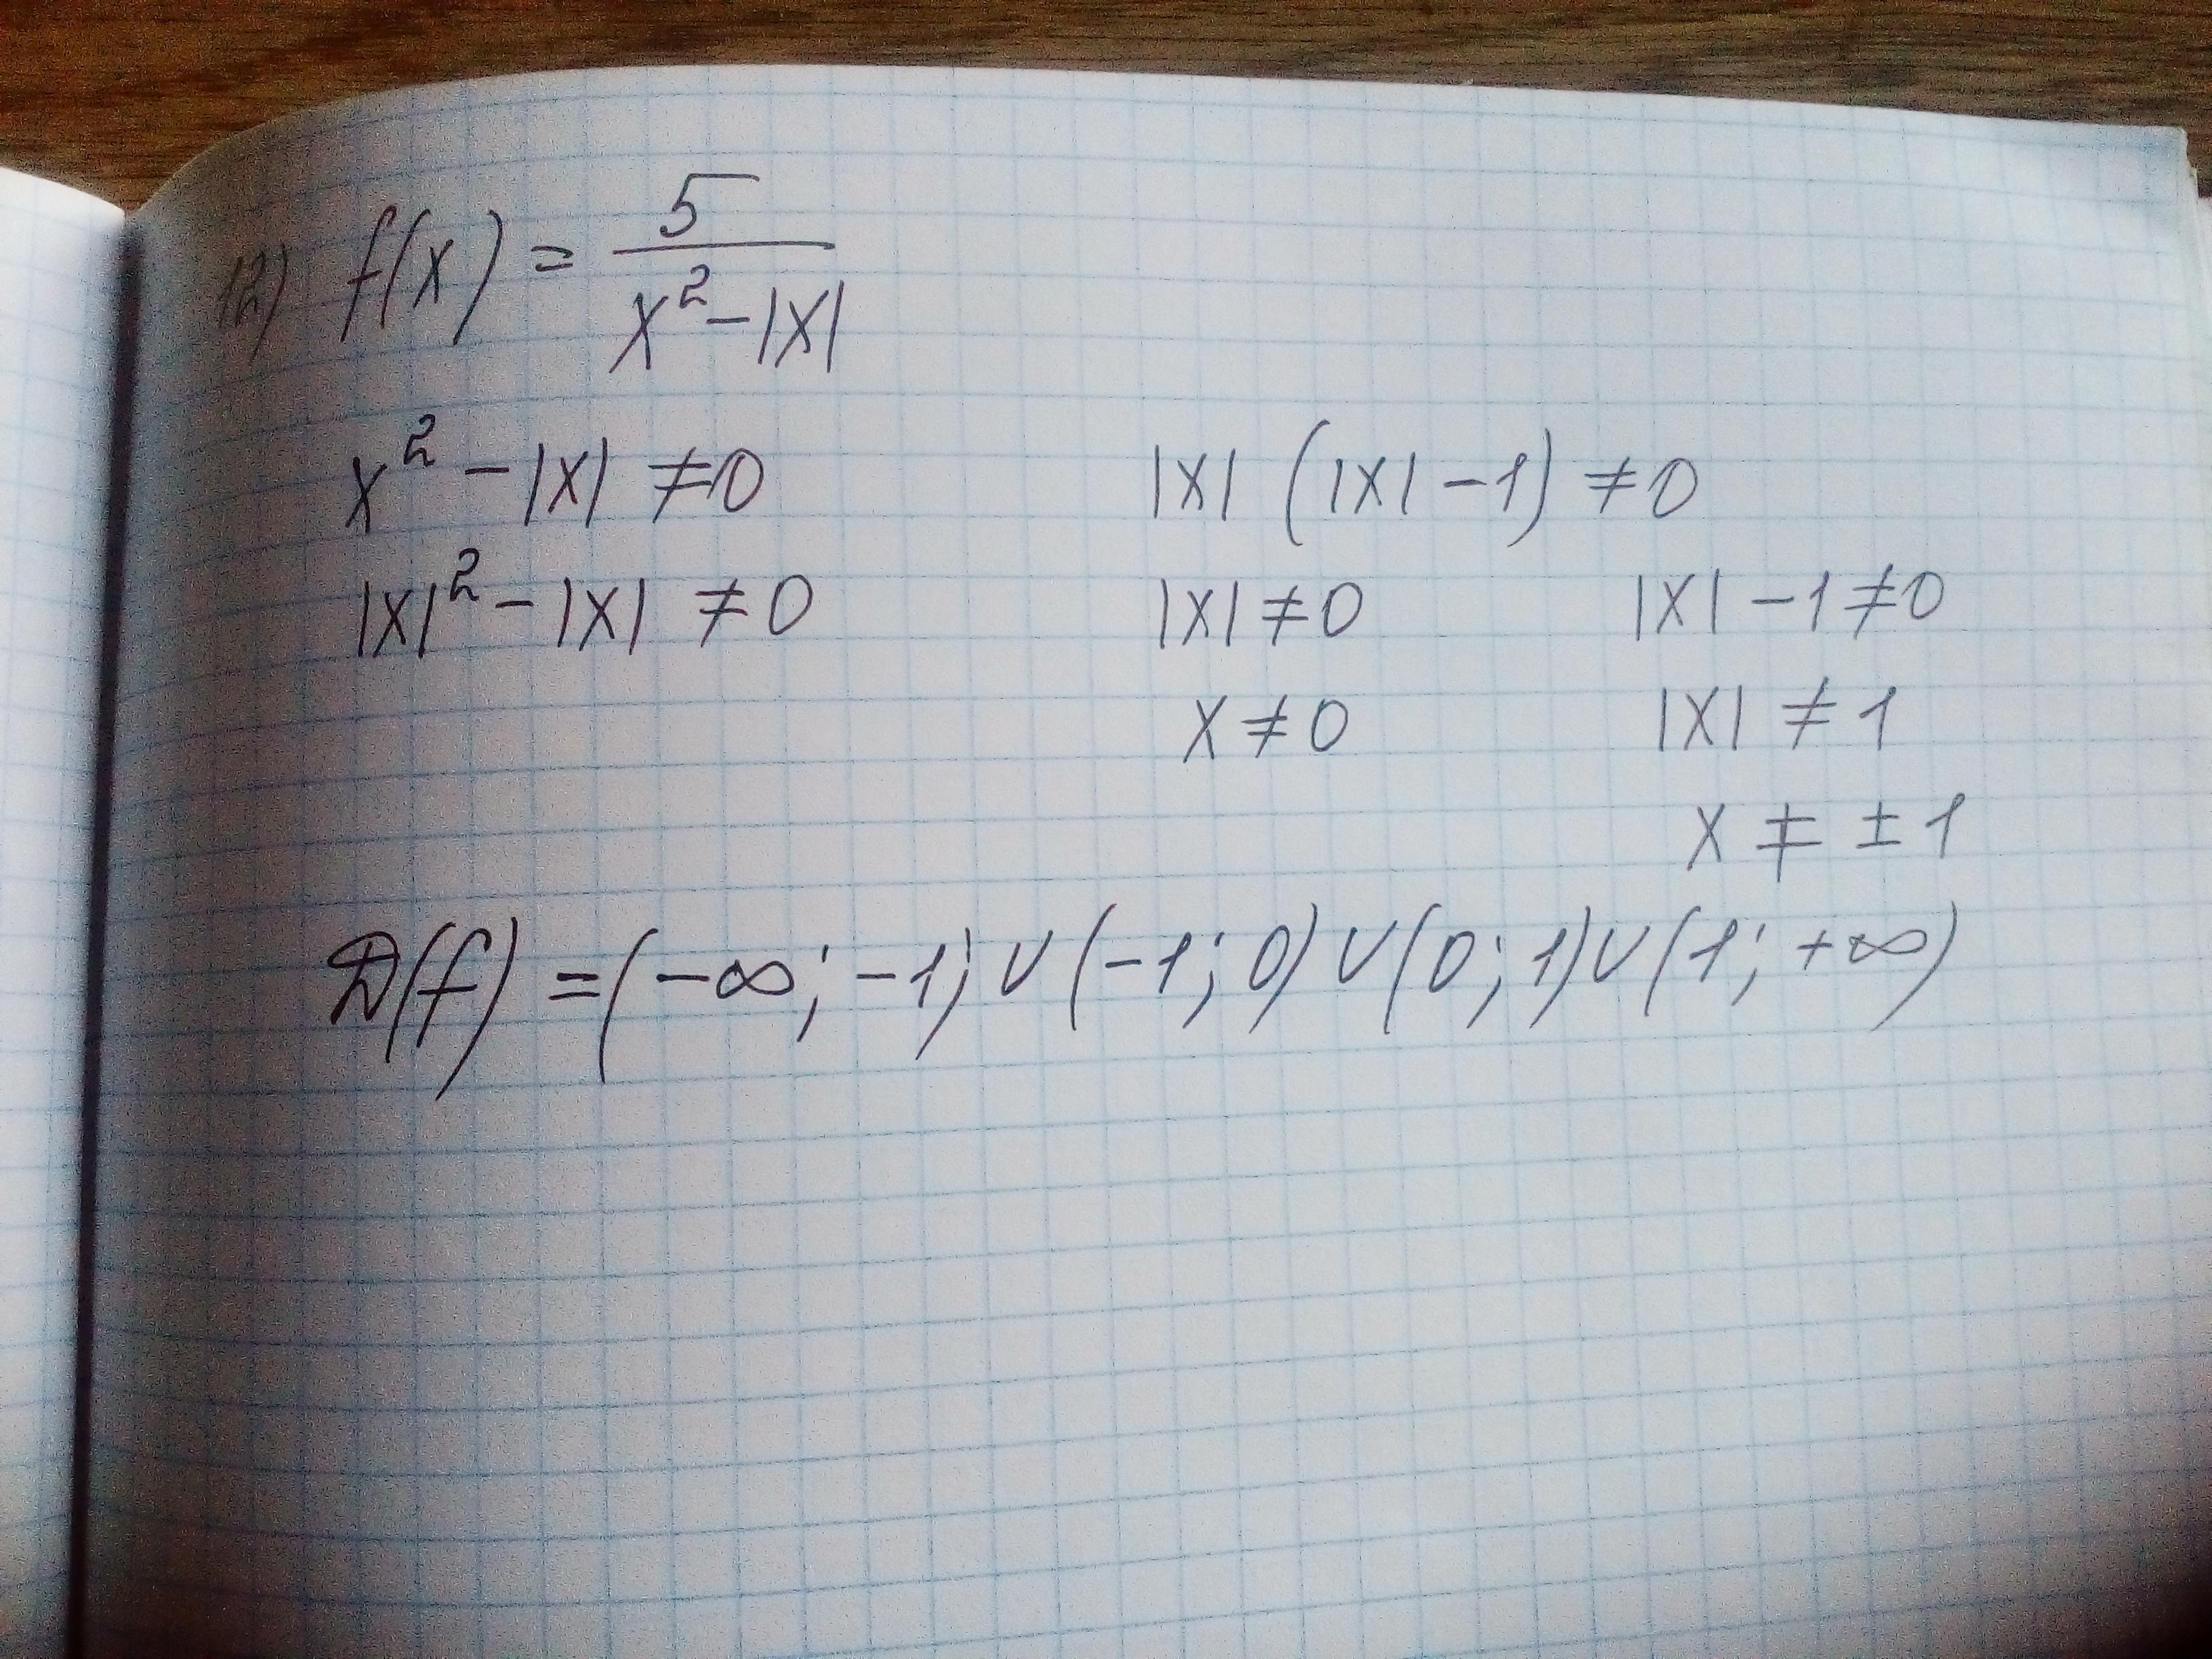 12) f(x) = 5 / (x² - |x|)
x² - |x| ≠ 0
|x|² - |x| ≠ 0
|x| (|x| - 1) ≠ 0
|x| ≠ 0    |x| - 1 ≠ 0
x ≠ 0    |x| ≠ 1
x ≠ ± 1
D(f) = (-∞; -1) ∪ (-1; 0) ∪ (0; 1) ∪ (1; +∞)